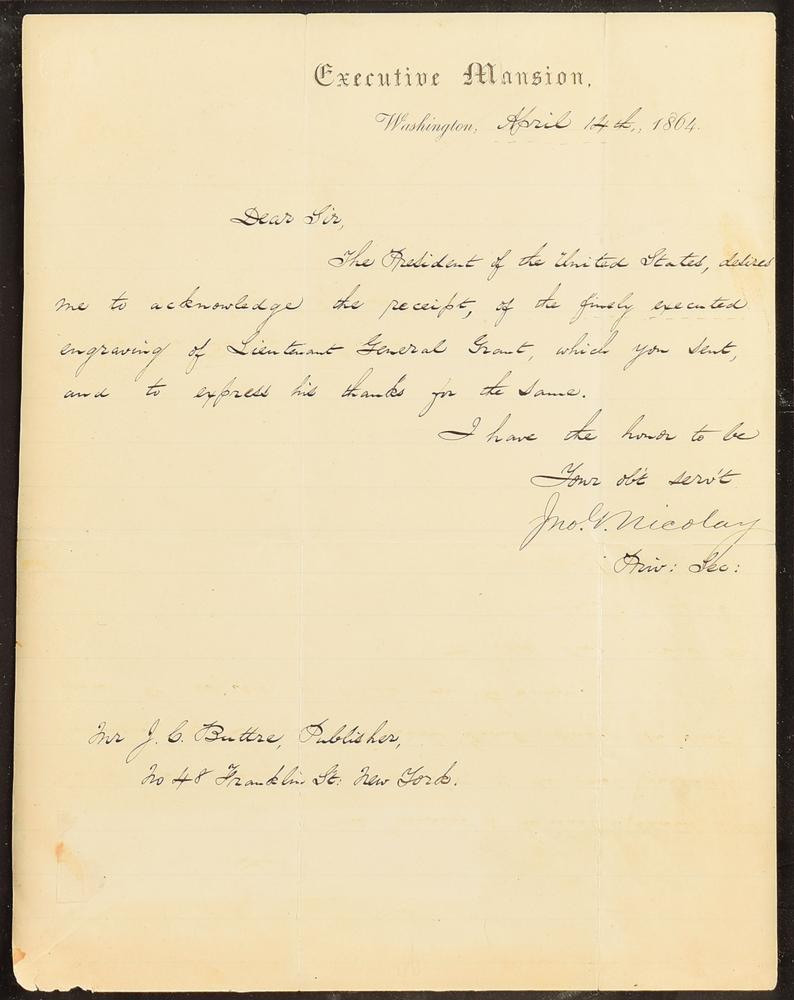 Executive Mansion,
Washington, April 14th, 1864.
Dear Sir,
The President of the United States, desires
me to acknowledge the receipt, of the finely executed
engraving of Lieutenant General Grant, which you sent,
and to express his thanks for the same.
I have the honor to be
Your obt servt
Jno. G. Nicolay
Priv: Sec:
Mr J. C. Buttre, Publisher,
No 48 Franklin St: New York.